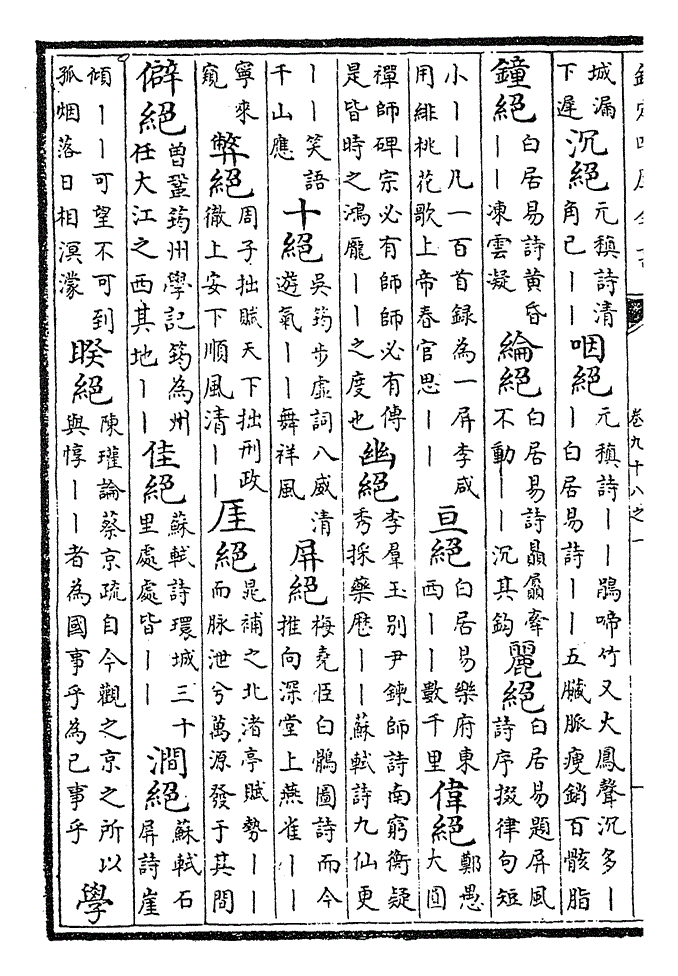 卷九十八之一
城漏下遲 沉絕 元稹詩清角已丨丨 咽絕 元稹詩丨丨鵑啼竹又大鳳聲沉多丨丨白居易詩丨丨五臟脈瘦銷百骸脂
鐘絕 白居易詩黃昏丨丨凍雲凝 綸絕 白居易詩贔屭牽不動丨丨沉其鈎 麗絕 白居易題屏風詩序掇律句短
小丨丨凡一百首録為一屏李咸用緋桃花歌上帝春官思丨丨 亘絕 白居易樂府東西丨丨數千里 偉絕 鄭愚大圓
禪師碑宗必有師師必有傳是皆時之鴻龐丨丨之度也 幽絕 李羣玉別尹鍊師詩南窮衡疑秀採藥歷丨丨蘇軾詩九仙更
丨丨笑語千山應 十絕 吳筠步虛詞八威清遊氣丨丨舞祥風 屏絕 梅堯臣白鶻圖詩而今推向深堂上燕雀丨丨
寧來窺 弊絕 周子拙賦天下拙刑政徹上安下順風清丨丨 厓絕 晁補之北渚亭賦勢丨丨而脉泄兮萬源發于其間
僻絕 曾鞏筠州學記筠為州任大江之西其地丨丨 佳絕 蘇軾詩環城三十里處處皆丨丨 澗絕 蘇軾石屏詩崖
傾丨丨可望不可到孤烟落日相溟濛 睽絕 陳瓘論蔡京疏自今觀之京之所以與惇丨丨者為國事乎為已事乎 學